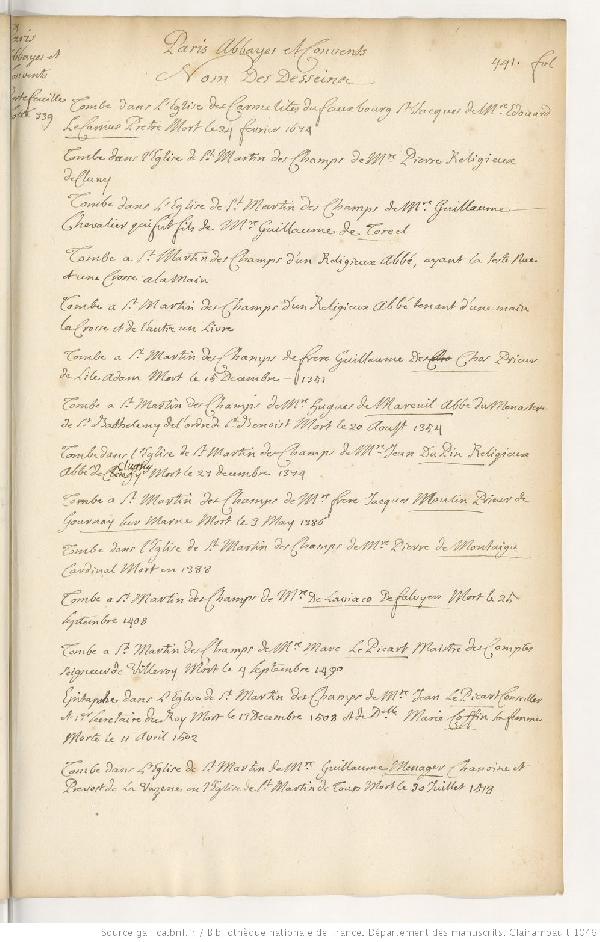 Paris Abbayes et Convents
491. fol
Nom Des Desseins
Paris
Abbayes et
Convents
339
Tombe dans l'Eglise des Carmelites du fauxbourg St Jacques de Mre Edouard
Pretre Mort le 24 fevrier 1614
Tombe dans l'Eglise de St Martin des Champs de Mre Pierre Religieux
de Cluny
Tombe dans L'Eglise de St Martin des Champs de Mre Guillaume
Chevalier qui fut fils de Mre Guillaume de Torecl
Tombe a St Martin des Champs d'un Religieux Abbé, ayant la teste Nue
et une Crosse a la Main
Tombe a St Martin des Champs d'un Religieux Abbé tenant d'une main
la Crosse et de l'autre un Livre
Tombe a St Martin des Champs de frere Guillaume Des Chos Prieur
de L'ile Adam Mort le 15 Decembre 1351
Tombe a St Martin des Champs de Mre Hugues de Mareuil Abbé du Monastere
de St Barthelemy de l'ordre de St Benoist Mort le 20 Aoust 1354
Tombe dans l'Eglise de St Martin des Champs de Mre Jean Du Pin Religieux
Abbé de Clugny Mort le 23 decembre 1374
Tombe a St Martin des Champs de Mre frere Jacques Moulin Prieur de
Gournay sur Marne Mort le 3 May 1386
Tombe dans l'Eglise de St Martin des Champs de Mre Pierre de Montaigu
Cardinal Mort en 1388
Tombe a St Martin des Champs de Mre De Mort le 25
Septembre 1408
Tombe a St Martin des Champs de Mre Marc Le Picart Maistre des Comptes
seigneur de Villeroy Mort le 4 Septembre 1490
Epitaphe dans L'Eglise de St Martin des Champs de Mre Jean Le Picart Conseiller
et Secretaire du Roy Mort le 17 Decembre 1508 et de Delle Marie Coffin sa femme
Morte le 11 Avril 1502
Tombe dans L'Eglise de St Martin de Mre Guillaume Menager Chanoine et
Prevost de La en l'Eglise de St Martin de Tours Mort le 30 Juillet 1513
Source gallica.bnf.fr / Bibliothèque nationale de France. Département des manuscrits. Clairambault 1046